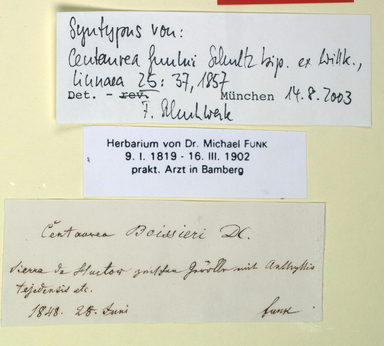 Syntypus von:
Centaurea funkii Schultz bip. ex Willk.,
Linnaea 25: 37, 1857
Det. - rev. München 14.8.2003
F.
Herbarium von Dr. Michael FUNK
9. I. 1819 - 16. III. 1902
prakt. Arzt in Bamberg
Centaurea Boissieri DC.
Sierra de Huetor zwischen Gerölle mit Anthyllis
tejedensis etc.
1848. 28. Juni Funk